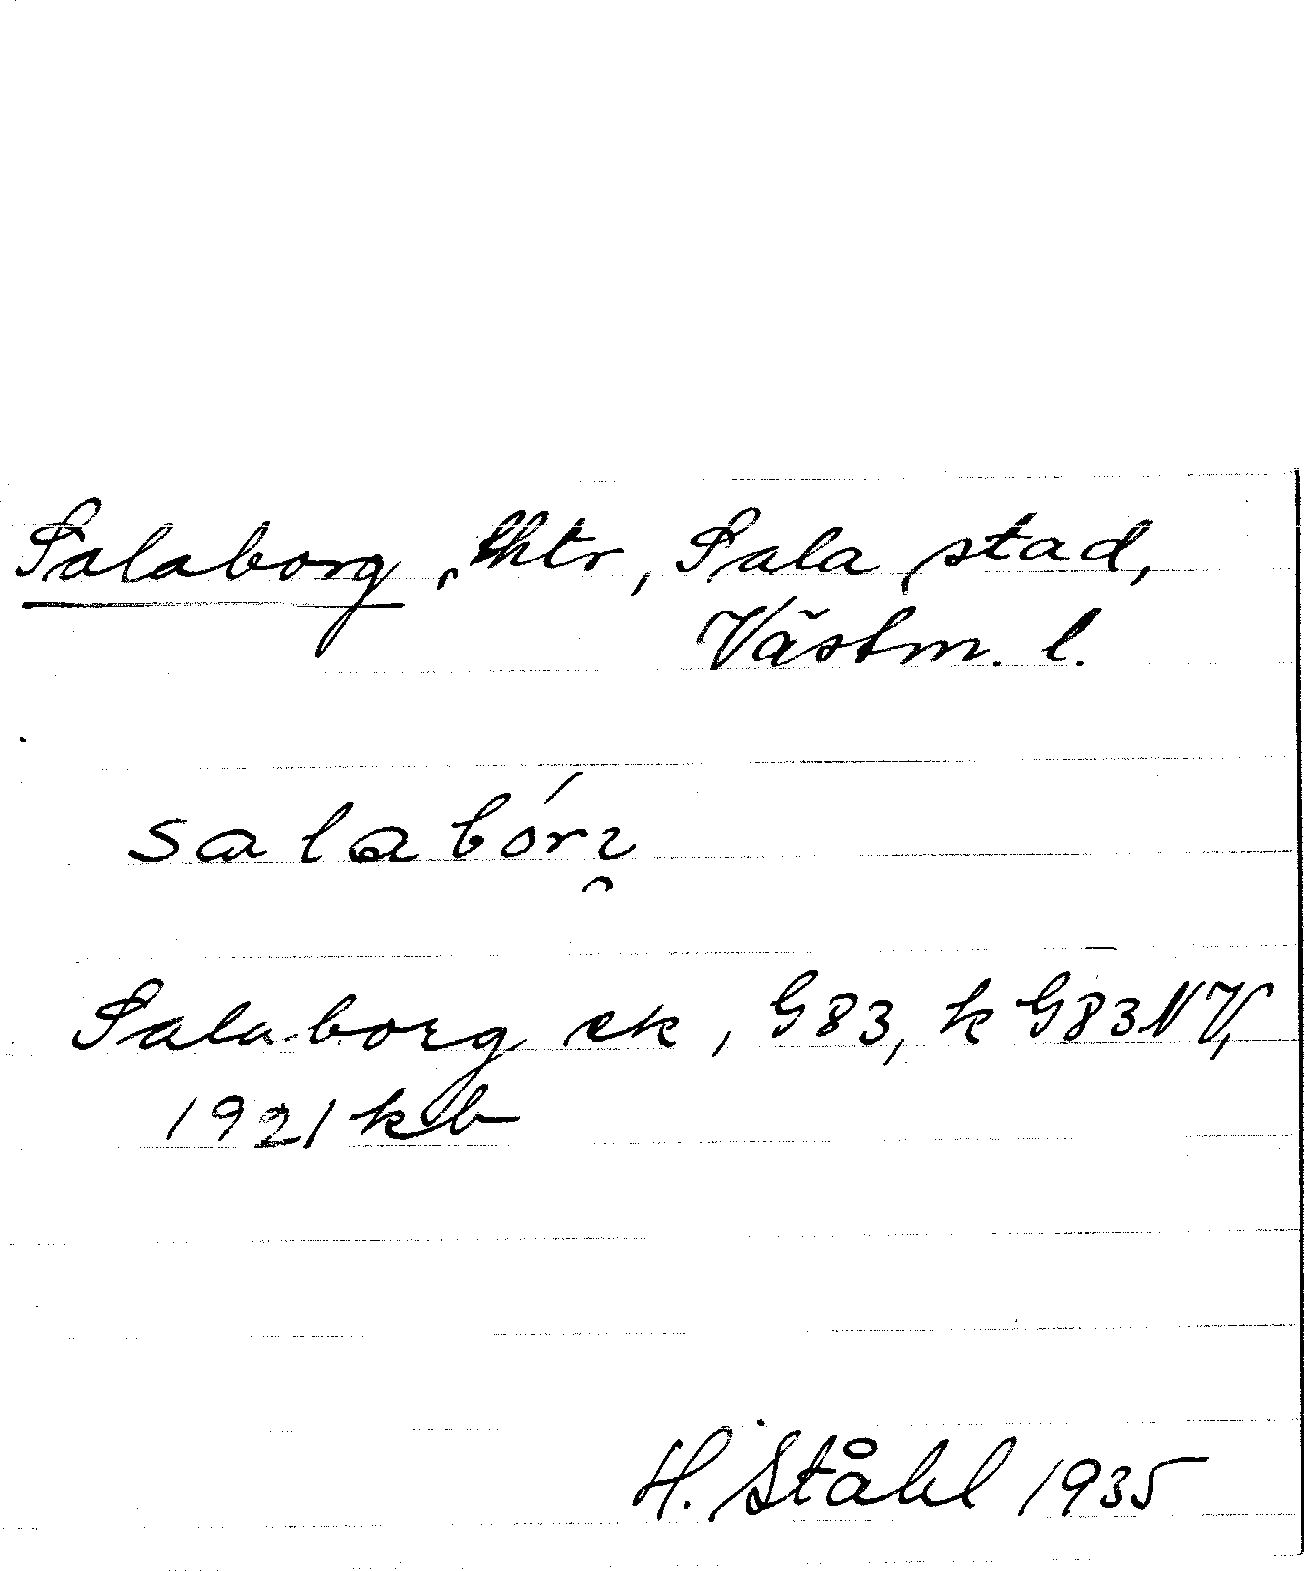 Salaborg, lhtr, Sala stad,
Västm. l.
salabórꝛ̯
Salaborg ek, G83, k G83NV,
1921 kb
H. Ståhl 1935